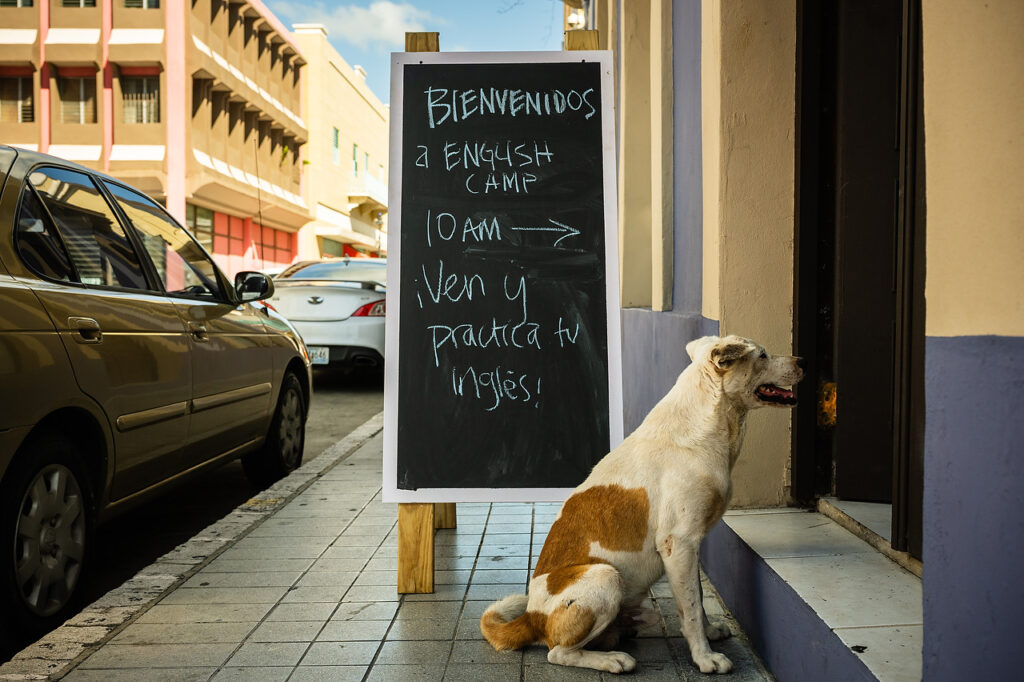 BIENVENIDOS
a ENGLISH
CAMP
10 AM →
¡Ven y
practica tu
Inglés!